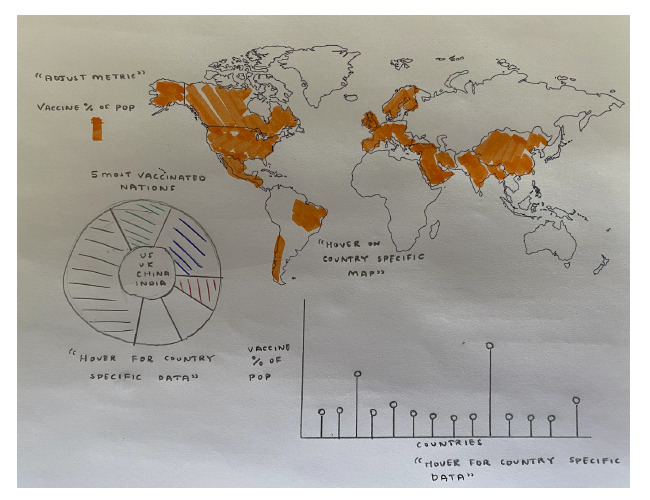 "ADJUST METRIC"
VACCINE % OF POP
5 MOST VACCINATED
NATIONS
US
UK
CHINA
INDIA
"HOVER FOR COUNTRY
SPECIFIC DATA"
"HOVER ON
COUNTRY SPECIFIC
MAP"
VACCINE
% OF
POP
COUNTRIES
"HOVER FOR COUNTRY SPECIFIC
DATA"